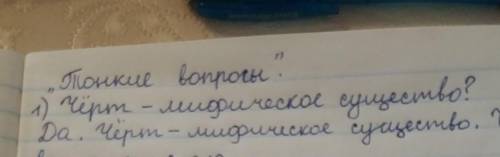 „Тонкие вопросы".
1) Чёрт – мифическое существо?
Да. Чёрт – мифическое существо.